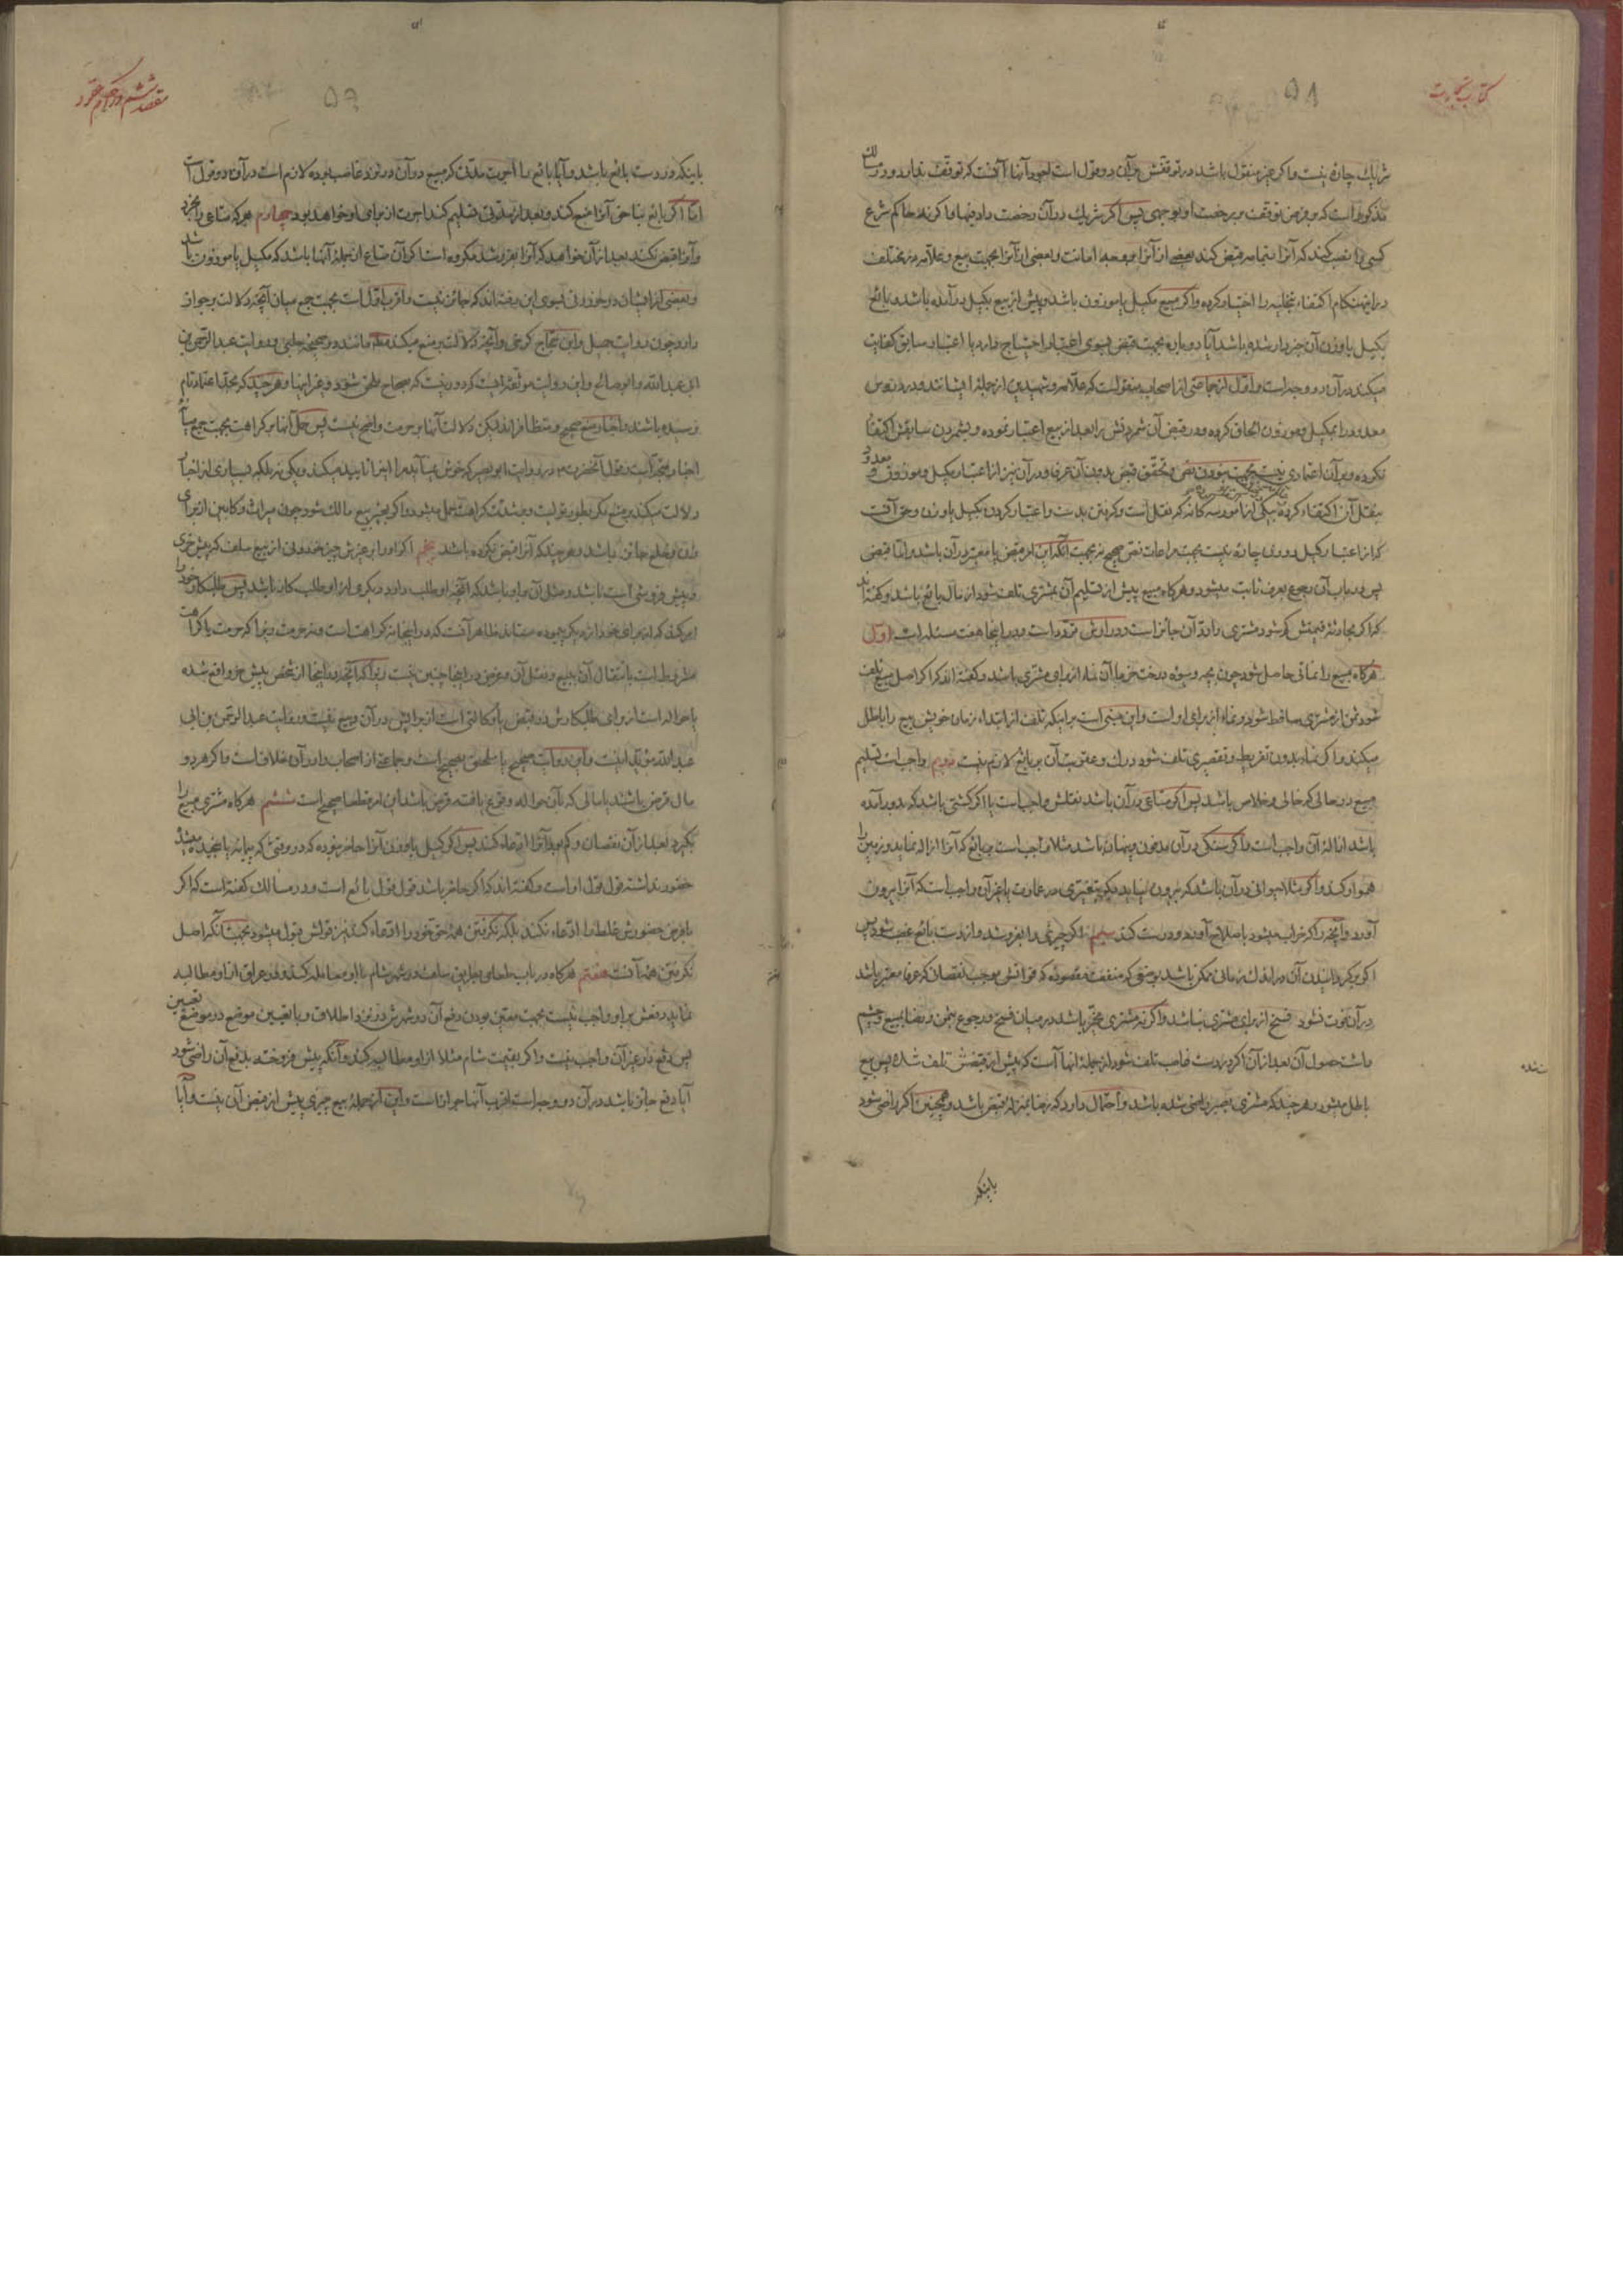 کتاب تجارت
۵۸
شریک چاره نیست و اگر غیر منقول باشد در توقفش بر آن دو قول است اجود آنها آنست که توقف ندارد و در مسالك
مذکور است که بر فرض توقف بر رخصت او بوجهی پس اگر شریک در آن رخصت داد فبها و اگر نه حاکم شرع
کسی را نصب کند که آنرا بتمامه قبض کند بعضی از آنرا بوجه امانت و بعضی از آنرا بجهت بیع و علامه در مختلف
در این هنگام اکتفاء بتخلیه را اختیار کرده و اگر مبیع مکیل یا موزون باشد و پیش از بیع بکیل در آمده باشد و بایع
بکیل یا وزن آن خبردار شده باشد آیا دوباره بجهت قبض بسوی اعتبار احتیاج دارد یا اعتبار سابق کفایت
میکند در آن دو وجه است و اول از جماعتی از اصحاب منقولست که علامه و شهیدین از جمله ایشانند و در دروس
معدود را بمکیل و موزون الحاق کرده و در قبض آن شمردنش را بعد از بیع اعتبار نموده و بشمردن سابقش اکتفا
نکرده و بر آن اعتمادی نیست بجهت نبودن نص و تحقق قبض بدون آن عرفا و در آن نیز از اعتبار مکیل و موزون و معدود
بنقل آن اکتفاء کرده یکی از امور سه گانه که نقل است و گرفتن بدست و اعتبار کردن بکیل یا وزن و حق آنست
که از اعتبار کیل در وی چاره نیست بجهت مراعات نص صحیح نه بجهت آنکه این امر قبض یا معتبر در آن باشد و اما قبض
پس در باب آن رجوع بعرف ثابت میشود و هرگاه مبیع پیش از تسلیم آن بمشتری تلف شود از مال بایع باشد و گفته‌اند
که اگر بحادثه قیمتش کم شود مشتری را رد آن جائز است و در ارش تردد است و در اینجا هفت مسئله است اول
هرگاه مبیع را نمائی حاصل شود چون بچه و میوه درخت خرما آن نماء از برای مشتری باشد و گفته‌اند که اگر اصل مبیع تلف
شود ثمن از مشتری ساقط شود و نماء از برای اوست و این مبنی است بر اینکه تلف از ابتداء زمان خویش بیع را باطل
میکند و اگر نماء بدون تفریط و تقصیری تلف شود درك و عقوبت آن بر بایع لازم نیست دویم واجب است تسلیم
مبیع در حالی که خالی و خلاص باشد پس اگر متاعی در آن باشد نقلش واجب است یا اگر کشتی باشد که بدو رآمده
باشد ازاله آن واجب است و اگر سنگی در آن مدفون و پنهان باشد مثلا واجب است بر بایع که آنرا ازاله نماید و زمین را
هموار کند و اگر مثلا حیوانی در آن باشد که بیرون نیاید مگر بتغییری در عمارت یا غیر آن واجب است که آنرا بیرون
آورد و آنچه را که خراب میشود باصلاح آورد و درست کند سیم اگر چیزی را بفروشد و از دست بایع غصب شود پس
اگر برگردانیدن آن در اندك زمانی ممکن باشد بوضعی که منفعت مقصوده که فواتش موجب نقصان که عرفا معتبر باشد
در آن فوت نشود فسخ از برای مشتری نباشد و اگر نه مشتری مخیر باشد در میان فسخ و رجوع بثمن و رضا بمبیع و چشم
داشت حصول آن بعد از آن اگر در دست غاصب تلف شود از جمله آنها است که پیش از قبضش تلف شده پس بیع
باطل میشود و هر چند که مشتری بصبر راضی شده باشد و احتمال دارد که رضا بمنزله قبض باشد و همچنین اگر راضی شود
باینکه
مقصد ششم در احکام عقود
۵۹
باینکه در دست بایع باشد و آیا بایع را اجرت مدتی که مبیع در آن در نزد غاصب بوده لازم است در آن دو قول است
اما اگر بایع بناحق آنرا منع کند و بعد از مدتی تسلیم کند اجرت از برای او خواهد بود چهارم هر که متاعی را بخرد
و آنرا قبض نکند بعد از آن خواهد که آنرا بفروشد مکروه است اگر آن متاع از جمله آنها باشد که مکیل یا موزون باشد
و بعضی از ایشان در خوردنی بسوی این رفته‌اند که جائز نیست و اقرب اول است بجهت جمع میان آنچه دلالت بر جواز
دارد چون روایت جمیل و ابن حجاج کرخی و آنچه دلالت بر منع میکند مطلقا مانند و صحیحه حلبی و روایت عبد الرحمن بن
ابی عبد الله و ابو صالح و این روایت موثقه ایست که دور نیست که بصحاح ملحق شود و غیر اینها و هر چند که بحد اعتماد تام
نرسیده باشند و اخبار منع صحیح و متظافراند لیکن دلالت آنها بر حرمت واضح نیست پس حمل آنها بر کراهت بجهت جمع میانه
اخبار متعین است و قول آنحضرت در روایت ابو بصیر که خوش نمیآید مرا اینرا تایید میکند و یکی نه بلکه بسیاری از اخبار
دلالت میکند بر منع مگر بطور تولیت و بشدت کراهت حمل میشود و اگر بغیر بیع مالك شود چون میراث و کابین از برای
زن و خلع جائز باشد و هر چند که آنرا قبض نکرده باشد پنجم اگر او را بر غیرش چیز خوردنی از بیع سلف که پیش خری
و پیش فروشی است باشد و مثل آن بر او باشد که آنچه او طلب دارد دیگری از او طلبکار باشد پس طلبکار خود را
امر کند که از برای خود از دیگری که بر عهده ستاند ظاهر آنست که در اینجا نه کراهت است و نه حرمت زیرا که حرمت یا کراهت
مشروط است بانتقال آن ببیع و نقل آن و عوض در اینجا چنین نیست زیرا که آنچه در اینجا از شخص پیش خر واقع شده
یا حواله است از برای طلبکارش در قبض یا وکالتی است از برایش در آن و بیع نیست و روایت عبد الرحمن بن ابی
عبد الله مؤید اینست و این روایت صحیح یا ملحق بصحیح است و جماعتی از اصحاب را در آن خلاف است و اگر هر دو
مال قرض باشند یا مالی که بآن حواله وقوع یافته قرض باشد این امر قطعا صحیح است ششم هرگاه مشتری مبیع را
بگیرد بعد از آن نقصان و کم بود آنرا ادعاء کند پس اگر کیل یا وزن آنرا حاضر نبوده که در وقتی که پیمانه یا سنجیده میشد
حضور نداشته قول قول او است و گفته‌اند که اگر حاضر باشد قول قول بایع است و در مسالك گفته است که اگر
با فرض حضورش غلط را ادعاء نکند بلکه نگرفتن همه حق خود را ادعاء کند نیز قولش قبول میشود بجهت آنکه اصل
نگرفتن همه آنست هفتم هرگاه در باب طعامی بطریق سلف در شهر شام با او معامله کند و در عراق از او مطالبه
نماید دفعش بر او واجب نیست بجهت معین بودن دفع آن در شهرش در نزد اطلاق و با تعیین موضع در موضع تعیین
پس دفع در غیر آن واجب نیست و اگر بقیمت شام مثلا از او مطالبه کند و آنکه پیش فروخته بدفع آن راضی شود
آیا دفع جائز باشد در آن دو وجه است اقرب آنها جواز است و این از جمله بیع چیزی پیش از قبض آن نیست و آیا